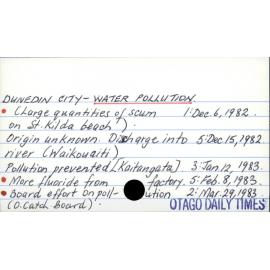 DUNEDIN CITY - WATER POLLUTION.
(Large quantities of scum 1: Dec. 6, 1982
on St. Kilda beach!).
Origin unknown. Discharge into 5: Dec 15, 1982
river (Waikouaiti)
Pollution prevented (Kaitangata) 3: Jan 12, 1983.
More fluoride from factory. 5: Feb. 8, 1983.
Board effort on poll- ution 2: Mar. 29, 1983
(O. Catch Board).
OTAGO DAILY TIMES